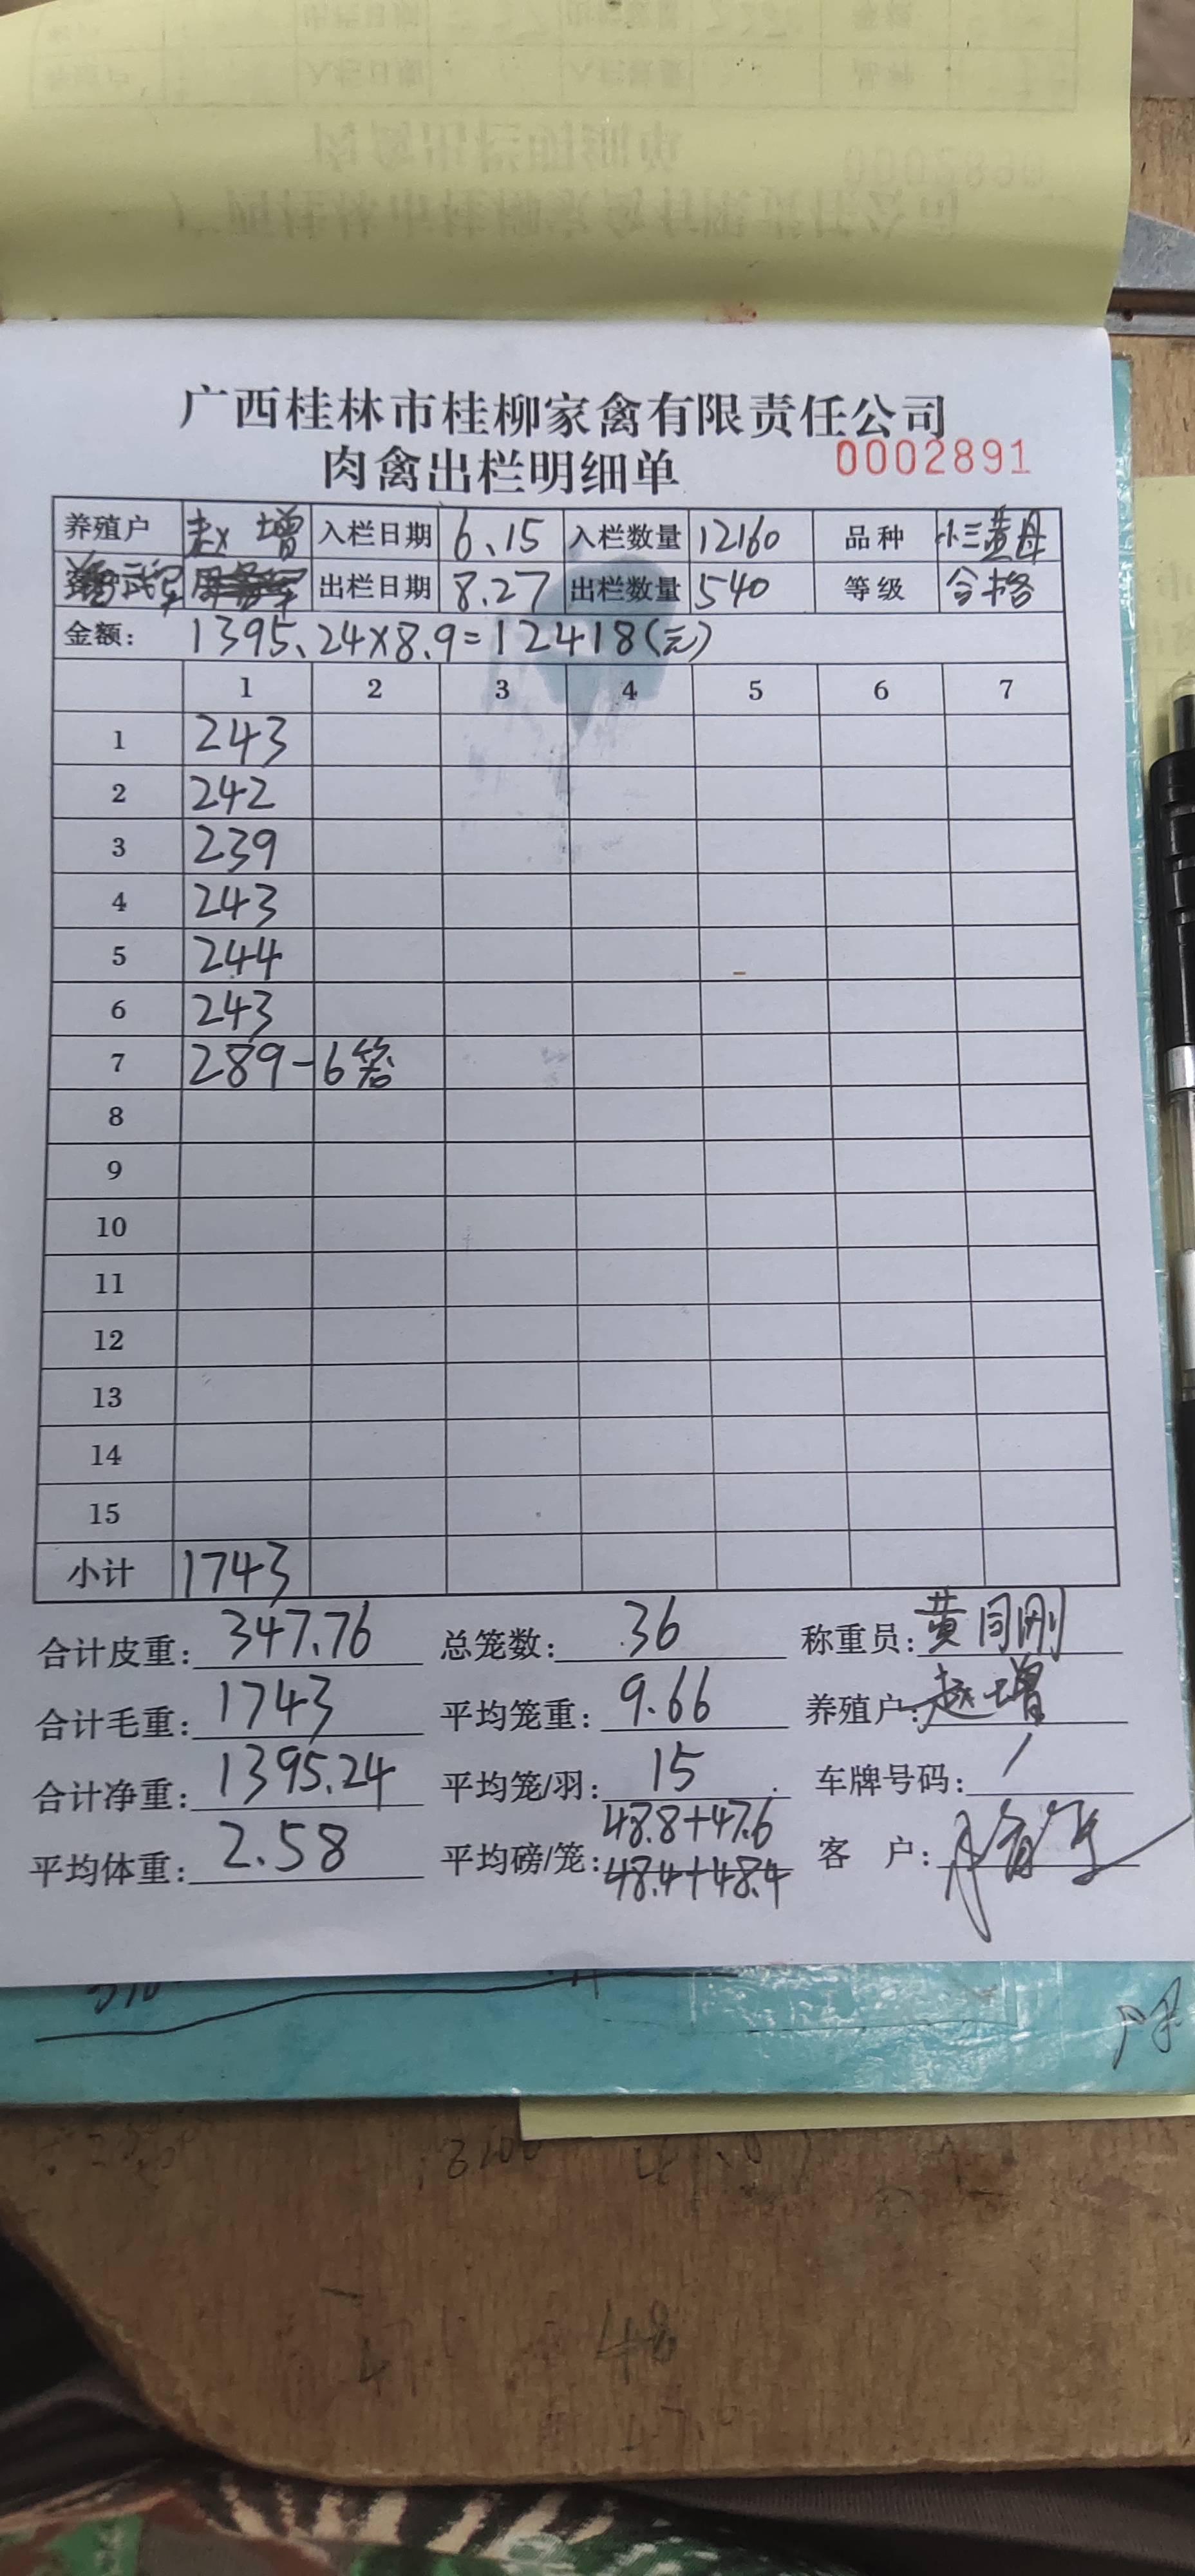 广西桂林市桂柳家禽有限责任公司
肉禽出栏明细单 0002891
养殖户 赵增 入栏日期 6.15 入栏数量 12160 品种 小三黄母
出栏日期 8.27 出栏数量 540 等级 合格
金额: 1395.24×8.9=12418(元)
1 2 3 4 5 6 7
1 243
2 242
3 239
4 243
5 244
6 243
7 289-6笼
8
9
10
11
12
13
14
15
小计 1743
合计皮重: 347.76 总笼数: 36 称重员: 黄同刚
合计毛重: 1743 平均笼重: 9.66 养殖户: 赵增
合计净重: 1395.24 平均笼/羽: 15 车牌号码: /
48.8+47.6
平均体重: 2.58 平均磅/笼: 48.4+48.4 客 户:
48